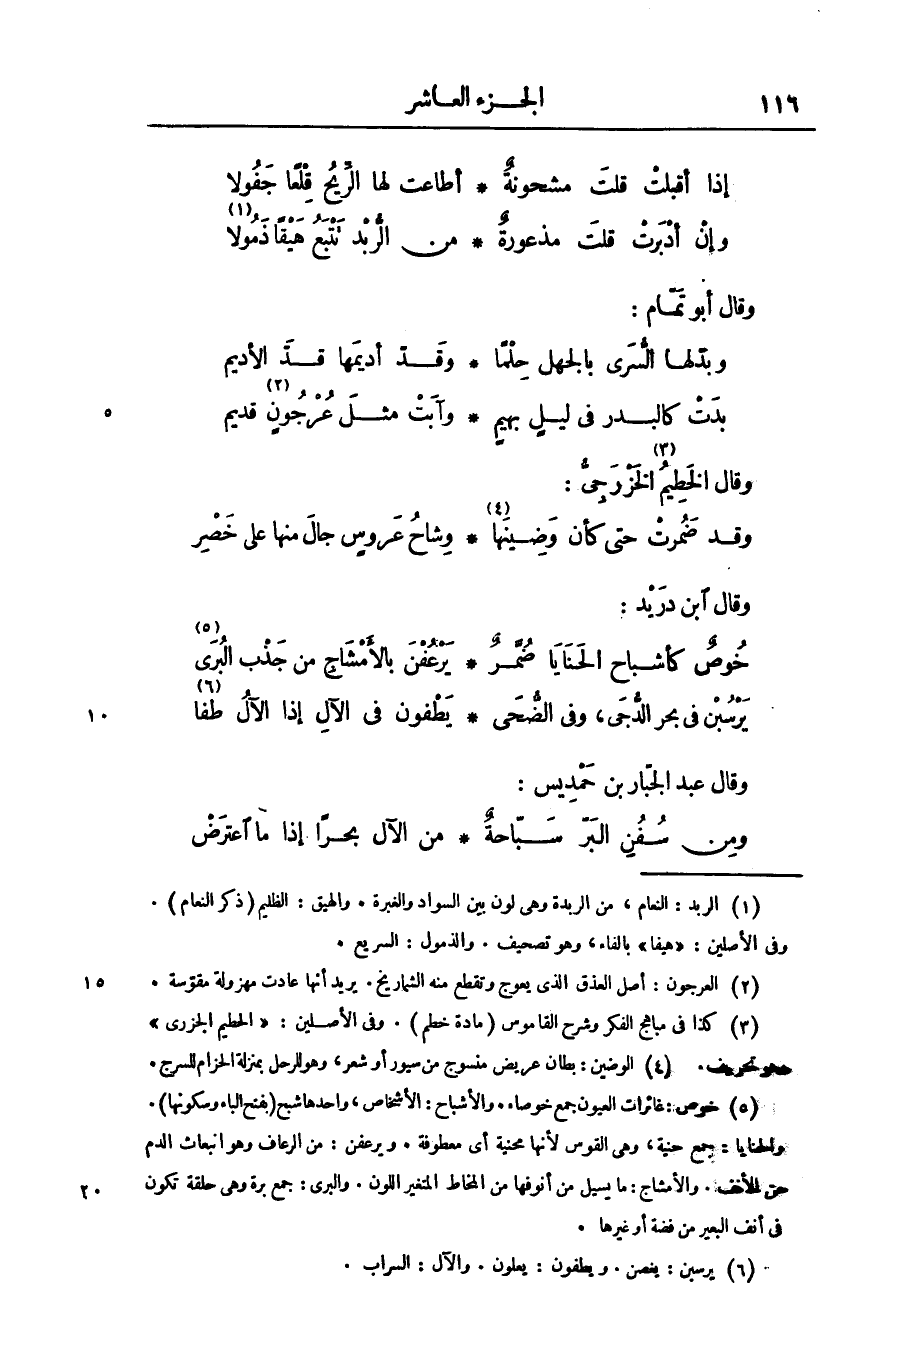 ١١٦ الجزء العاشر
إذا أقبلتْ قلتَ مشحونةٌ * أطاعت لها الرِّيحُ قِلْعًا جَفُولا
وإنْ أدْبَرتْ قلتَ مذعورةٌ * من الرُّبْد تَتْبَعُ هَيْقًا ذَمُولا (١)
وقال أبو تَمّام :
وبدّلها السُّرَى بالجهل حِلْمًا * وقَدّ أديمَها قدَّ الأديم
بدَتْ كالبدر فى ليلٍ بهيمٍ * وآبَتْ مثلَ عُرْجُونٍ قديم (٢) ٥
وقال الخَطِيمُ الخَزْرَجِىُّ (٣) :
وقد ضَمُرتْ حتى كأن وَضِينَها (٤) * وِشاحُ عَروسٍ جالَ منها على خَصْرِ
وقال آبن دُرَيْد :
خُوصٌ كأشباح الحَنَايَا ضُمَّرٌ * يَرْعُفْنَ بالأَمْشَاجِ من جَذْب البُرَى (٥)
يَرْسُبْن فى بحر الدُّجَى، وفى الضُّحَى * يَطْفون فى الآلِ إذا الآلُ طَفا (٦) ١٠
وقال عبد الجبّار بن حَمْدِيس :
ومِن سُفُنِ البَرّ سَبّاحةٌ * من الآل بحرًا إذا ما آعترَضْ
(١) الربد : النعام ، من الربدة وهى لون بين السواد والغبرة . والهيق : الظليم (ذكر النعام) .
وفى الأصلين : «هيفا» بالفاء، وهو تصحيف . والذمول : السريع .
(٢) العرجون : أصل العذق الذى يعوج وتقطع منه الشماريخ . يريد أنها عادت مهزولة مقوّسة . ١٥
(٣) كذا فى مباهج الفكر وشرح القاموس (مادة خطم) . وفى الأصلين : «الحطيم الجزرى»
وهو تحريف . (٤) الوضين : بطان عريض منسوج من سيور أو شعر، وهو للرحل بمنزلة الحزام للسرج .
(٥) خوص : غائرات العيون جمع خوصاء . والأشباح : الأشخاص ، واحدها شبح (بفتح الباء وسكونها) .
والحنايا : جمع حنية ، وهى القوس لأنها محنية أى معطوفة . ويرعفن : من الرعاف وهو انبعاث الدم
من الأنف . والأمشاج : ما يسيل من أنوفها من المخاط المتغير اللون . والبرى : جمع برة وهى حلقة تكون ٢٠
فى أنف البعير من فضة أو غيرها .
(٦) يرسبن : يغصن . ويطفون : يعلون . والآل : السراب .